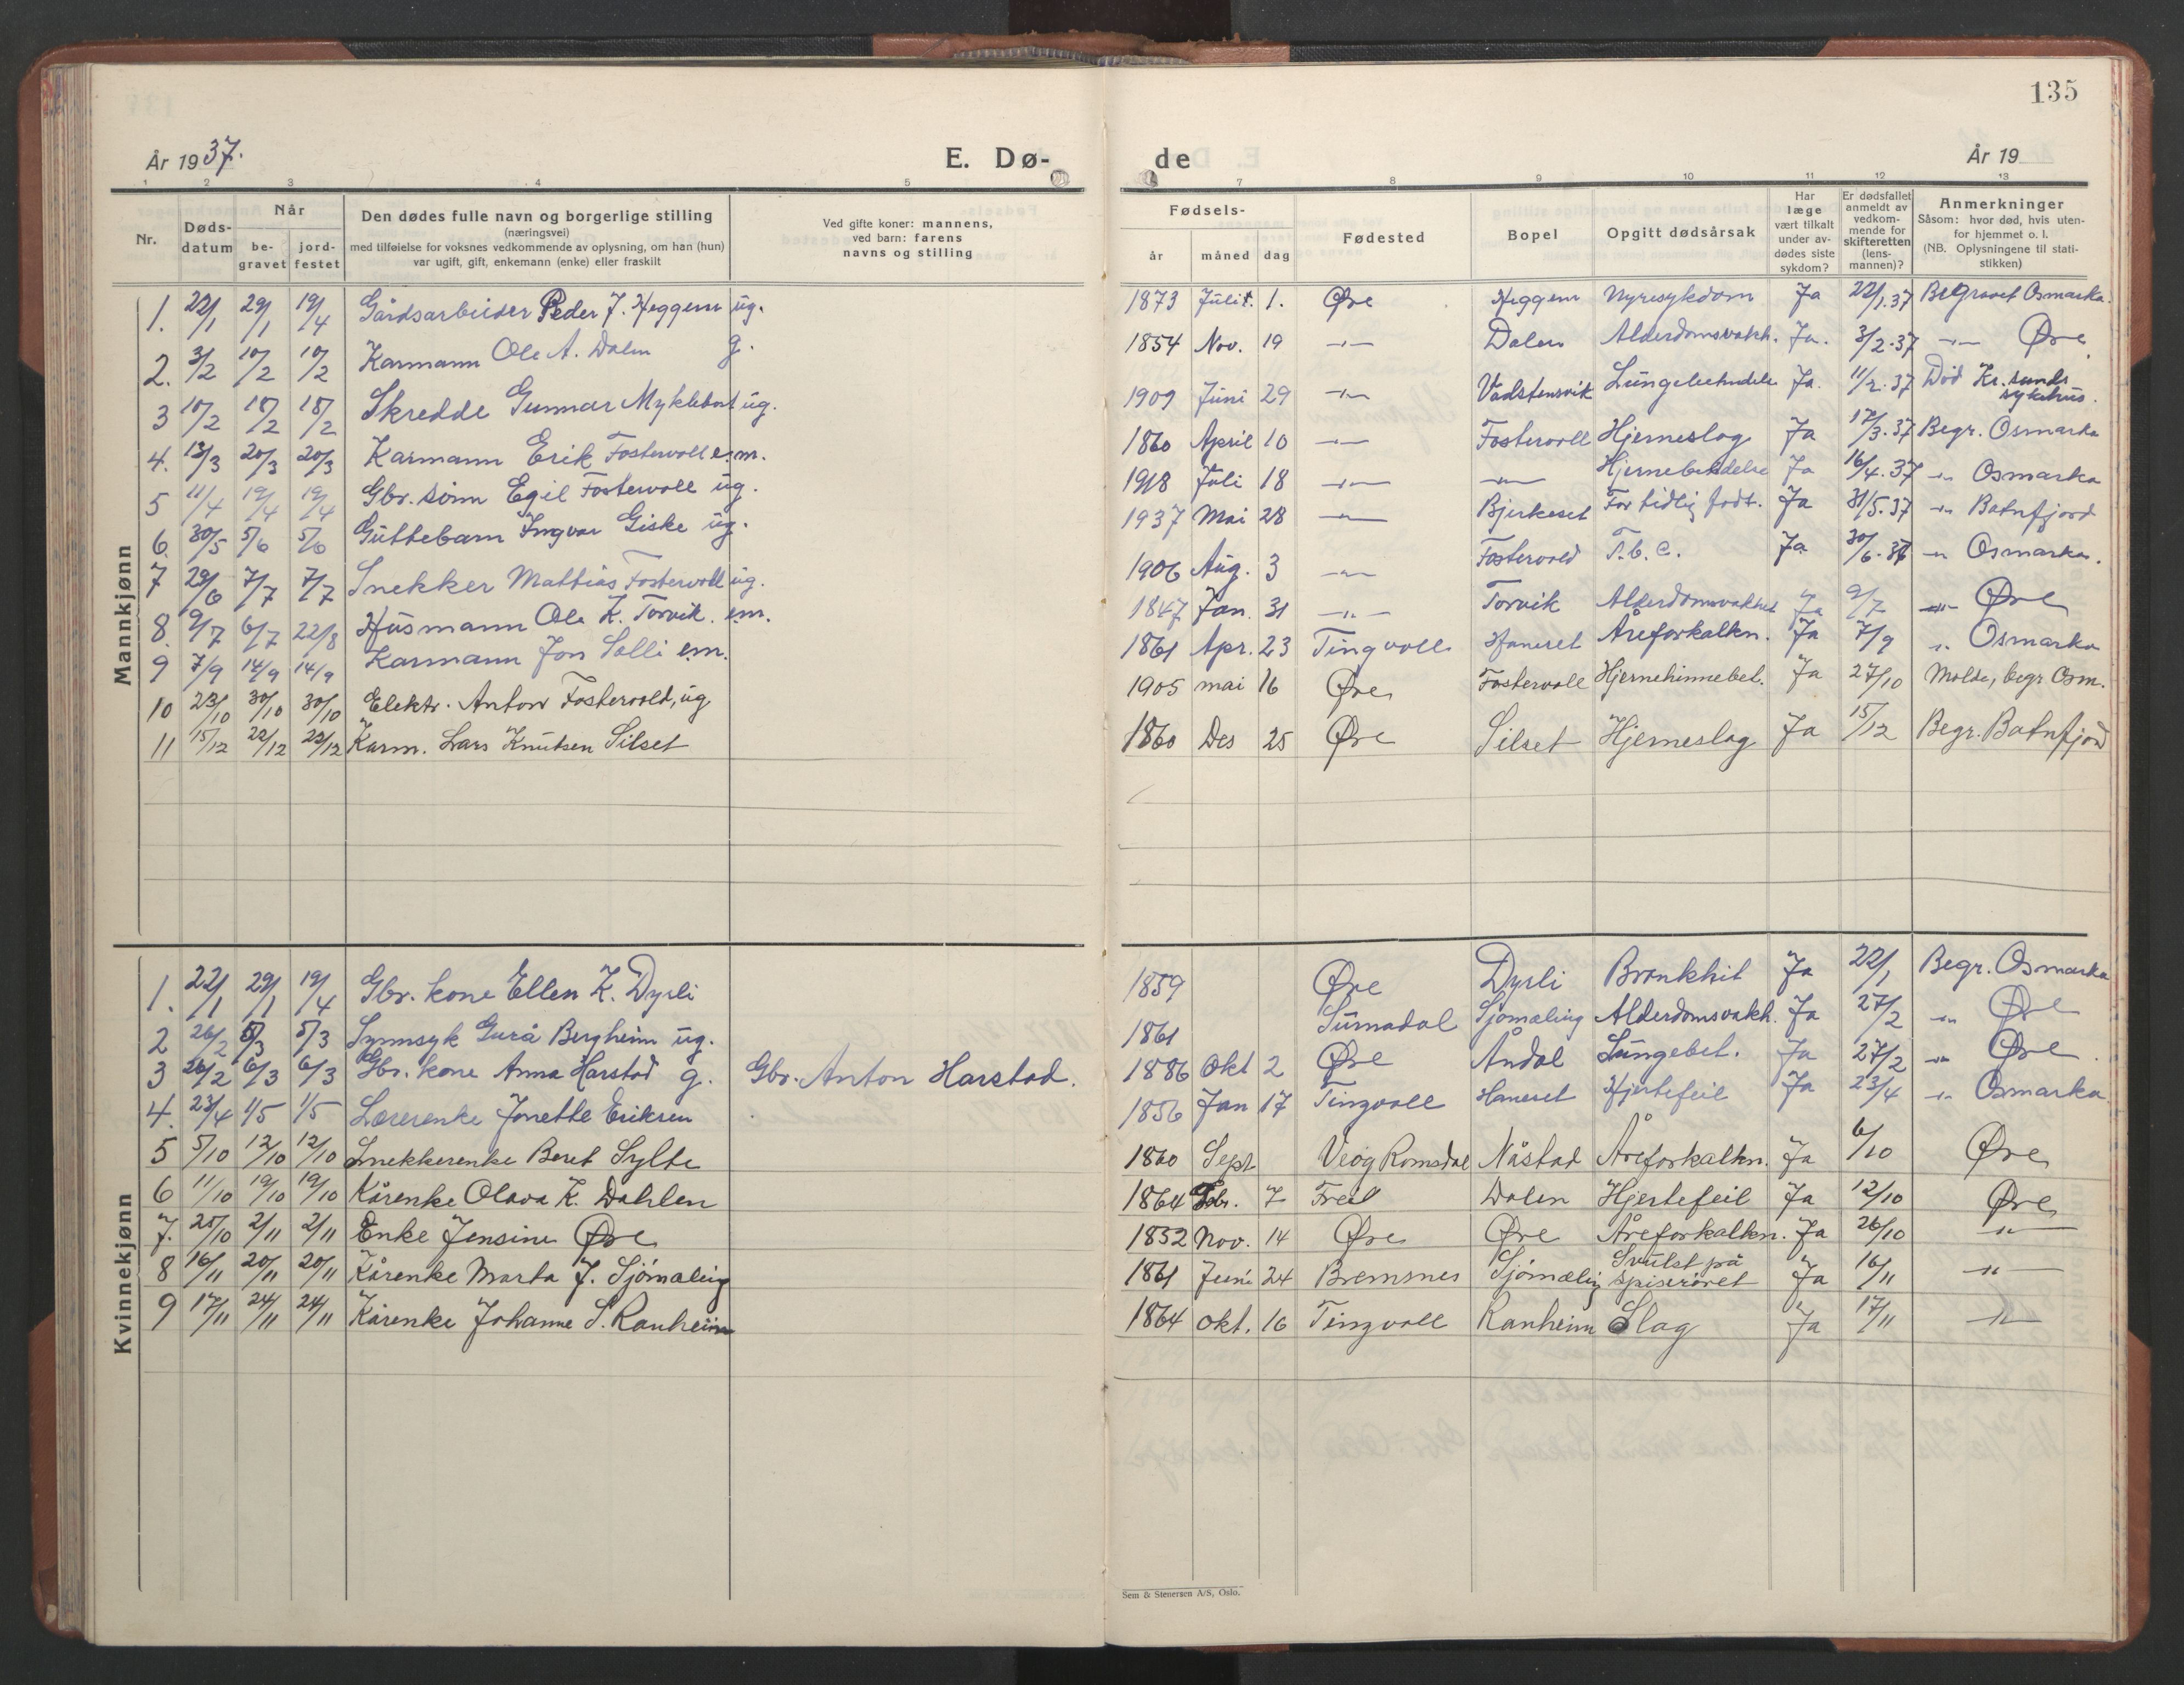 135
År 1937.
E. Dø-
de
År 19
1 2 3 4 5
7 8 9 10 11 12 13
Nr.
Døds-
datum
Når
be-
gravet
jord-
festet
Den dødes fulle navn og borgerlige stilling
(næringsvei)
med tilføielse for voksnes vedkommende av oplysning, om han (hun)
var ugift, gift, enkemann (enke) eller fraskilt
Ved gifte koner: mannens,
ved barn: farens
navns og stilling
Fødsels-
år måned dag
Fødested
Bopel
Opgitt dødsårsak
Har
læge
vært tilkalt
under av-
dødes siste
sykdom?
Er dødsfallet
anmeldt av
vedkom-
mende for
skifteretten
(lens-
mannen)?
Anmerkninger
Såsom: hvor død, hvis uten-
for hjemmet o. l.
(NB. Oplysningene til stati-
stikken)
Mannkjønn
1. 22/1 29/1 19/4 Gårdsarbeider Peder J. Heggem ug. 1873 Juli 1. Øre Heggem Nyresykdom Ja 22/1.37 Begravet Osmarka.
2. 3/2 10/2 10/2 Karmann Ole A. Dalen g. 1854 Nov. 19 -"- Dalen Alderdomsvakh. Ja. 3/2.37 -"- Øre
3 10/2 18/2 18/2 Skredde Gunnar Myklebost ug. 1909 Juni 29 -"- Vadstensvik Lungebetndelse Ja. 11/2.37 Død Kr.sunds sykehus.
4. 13/3 20/3 20/3 Karmann Erik Fostervoll e.m. 1860 April 10 -"- Fostervoll Hjerneslag Ja 17/3.37 Begr. Osmarka
5 11/4 19/4 19/4 Gbr. sønn Egil Fostervoll ug. 1918 Juli 18 -"- -"- Hjernebetndelse Ja 16/4.37 -"- Osmarka
6. 30/5 5/6 5/6 Guttebarn Ingvar Giske ug. 1937 Mai 28 -"- Bjerkeset For tidlig født. Ja 31/5.37 -"- Batnfjord
7 29/6 7/7 7/7 Snekker Mattias Fostervoll ug. 1906 Aug. 3 -"- Fostervold T.b.c. Ja 30/6.37 -"- Osmarka.
8. 9/7 6/7 22/8 Husmann Ole K. Torvik. em. 1847 Jan. 31 -"- Torvik Alderdomsvakhet Ja 9/7 -"- Øre
9 7/9 14/9 14/9 Karmann Jon Solli em. 1861 Apr. 23 Tingvoll Haneset Åreforkalkn. Ja 7/9 -"- Osmarka
10 23/10 30/10 30/10 Elektr. Anton Fostervold, ug 1905 mai 16 Øre Fostervoll Hjernehinnebet. Ja 27/10 Molde, begr Osm.
11 15/12 22/12 22/12 Karm. Lars Knutsen Silset 1860 Des 25 Øre Silset Hjerneslag Ja 15/12 Begr. Batnfjord
Kvinnekjønn
1. 22/1 29/1 19/4 Gbr. kone Ellen K. Dyrli 1859 Øre Dyrli Bronkhit Ja 22/1 Begr. Osmarka
2 26/2 5/3 5/3 Synnsyk Gurå Bergheim ug. 1861 Surnadal Sjømæling Alderdomsvakh. Ja 27/2 -"- Øre
3 26/2 6/3 6/3 Gbr. kone Anna Harstad g. Gbr. Anton Harstad. 1886 Okt 2 Øre Åndal Lungebet. Ja 27/2 -"- Øre.
4. 23/4 1/5 1/5 Lærerenke Jonette Eriksen 1856 Jan 17 Tingvoll Haneset Hjertefeil Ja 23/4 -"- Osmarka
5 5/10 12/10 12/10 Snekkerenke Beret Sylte 1860 Sept Veøy Romsdal Nåstad Åreforkalkn. Ja 6/10 Øre
6 11/10 19/10 19/10 Kårenke Olava K. Dahlen 1864 Febr. 7 Frei Dalen Hjertefeil Ja 12/10 Øre
7. 25/10 2/11 2/11 Enke Jensine Øre 1852 Nov. 14 Øre Øre Åreforkalkn. Ja 26/10 -"-
8 16/11 20/11 20/11 Kårenke Marta J. Sjømæling 1861 Juni 24 Bremsnes Sjømæling Svulst på spiserøret Ja 16/11 -"-
9 17/11 24/11 24/11 Kårenke Johanne S. Ranheim 1864 Okt. 16 Tingvoll Ranheim Slag Ja 17/11 -"-
Sem & Stenersen A/S, Oslo.